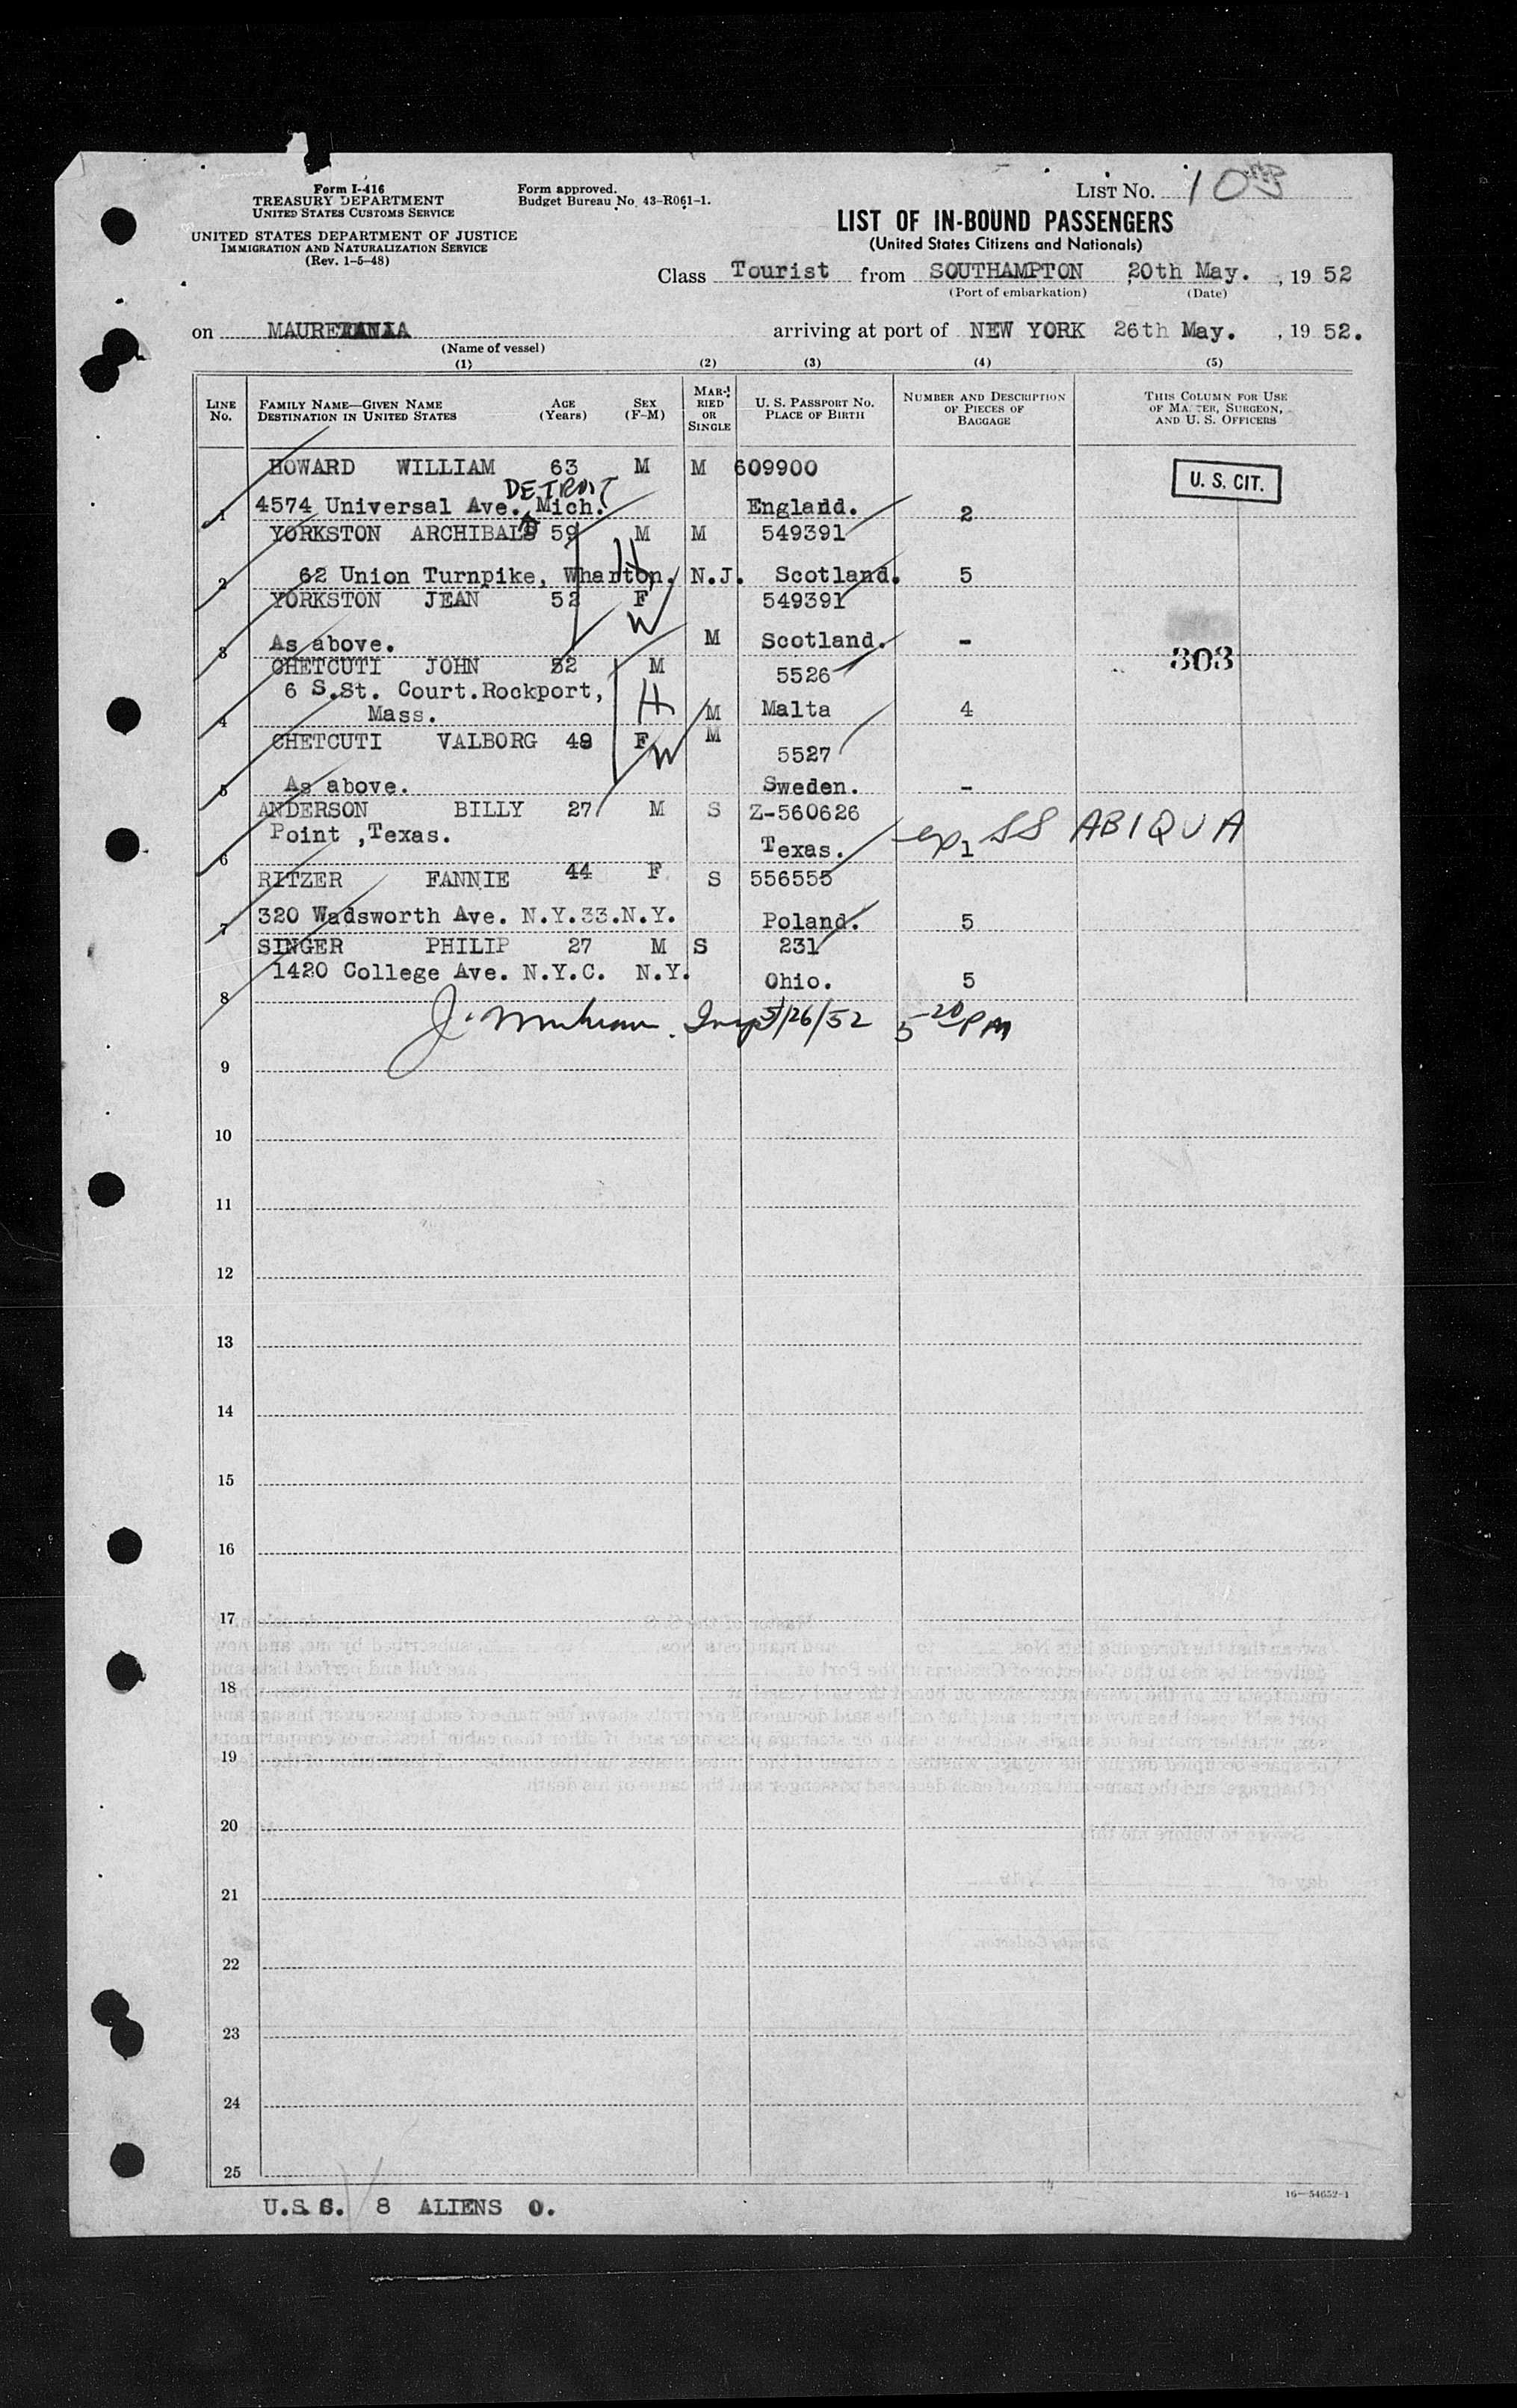 Form I-416
TREASURY DEPARTMENT
UNITED STATES CUSTOMS SERVICE
UNITED STATES DEPARTMENT OF JUSTICE
IMMIGRATION AND NATURALIZATION SERVICE
(Rev. 1-5-48)
Form approved.
Budget Bureau No. 43-R061-1.
LIST NO. 10
LIST OF IN-BOUND PASSENGERS
(United States Citizens and Nationals)
Class Tourist from SOUTHAMPTON 20th May. , 19 52
(Port of embarkation) (Date)
on MAURETANIA arriving at port of NEW YORK 26th May. , 19 52.
(Name of vessel)
(1) (2) (3) (4) (5)
LINE NO. FAMILY NAME—GIVEN NAME DESTINATION IN UNITED STATES AGE (Years) SEX (F-M) MARRIED OR SINGLE U. S. PASSPORT NO. PLACE OF BIRTH NUMBER AND DESCRIPTION OF PIECES OF BAGGAGE THIS COLUMN FOR USE OF MASTER, SURGEON, AND U. S. OFFICERS
HOWARD WILLIAM 63 M M 609900 U. S. CIT.
DETROIT
1 4574 Universal Ave. Mich. England. 2
YORKSTON ARCHIBALD 59 M M 549391
H
2 62 Union Turnpike, Wharton, N.J. Scotland. 5
YORKSTON JEAN 52 F 549391
W
3 As above. M Scotland. -
303
CHETCUTI JOHN 52 M 5526
6 S.St. Court.Rockport, H
4 Mass. M Malta 4
CHETCUTI VALBORG 49 F W M 5527
5 As above. Sweden. -
ANDERSON BILLY 27 M S Z-560626
Point ,Texas. exp SS ABIQUA
6 Texas. 1
RITZER FANNIE 44 F S 556555
7 320 Wadsworth Ave. N.Y.33.N.Y. Poland. 5
SINGER PHILIP 27 M S 231
1420 College Ave. N.Y.C. N.Y. Ohio. 5
8
J. Insp 5/26/52 5 20 PM
9
10
11
12
13
14
15
16
17
18
19
20
21
22
23
24
25
16—54652-1
U.S.C. 8 ALIENS 0.